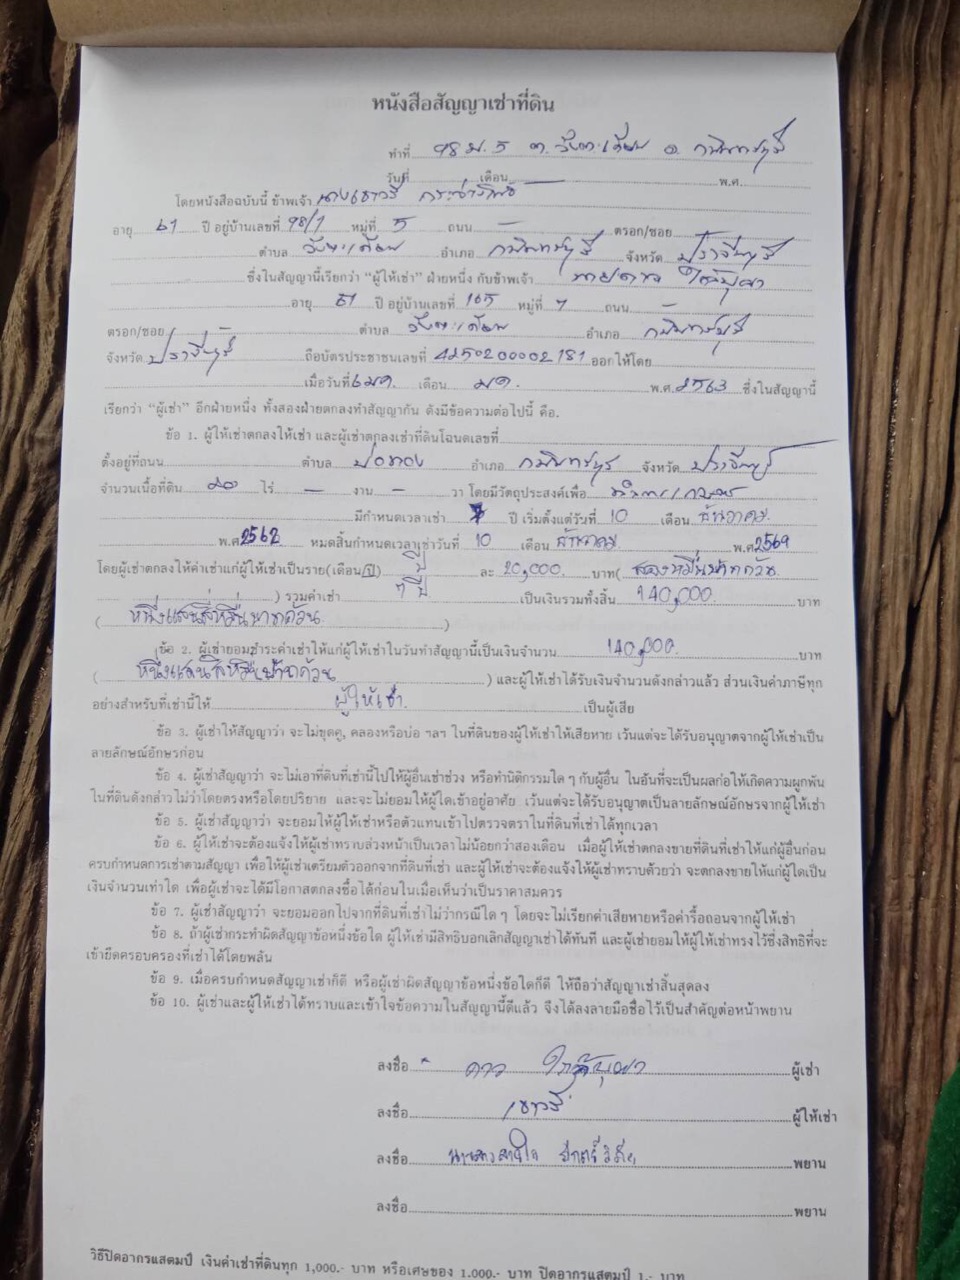 หนังสือสัญญาเช่าที่ดิน
ทำที่ 98 ม.5 ต.วังตะเคียน อ. กบินทร์บุรี
วันที่ เดือน พ.ศ.
โดยหนังสือฉบับนี้ ข้าพเจ้า นางเชาวรี
อายุ 61 ปี อยู่บ้านเลขที่ 98/1 หมู่ที่ 5 ถนน – ตรอก/ซอย
ตำบล วังตะเคียน อำเภอ กบินทร์บุรี จังหวัด ปราจีนบุรี
ซึ่งในสัญญานี้เรียกว่า "ผู้ให้เช่า" ฝ่ายหนึ่ง กับข้าพเจ้า นายดาว
อายุ 51 ปี อยู่บ้านเลขที่ 165 หมู่ที่ 7 ถนน
ตรอก/ซอย ตำบล วังตะเคียน อำเภอ กบินทร์บุรี
จังหวัด ปราจีนบุรี ถือบัตรประชาชนเลขที่ 4250200002181 ออกให้โดย
เมื่อวันที่ 6 มค. เดือน มค. พ.ศ. 2563 ซึ่งในสัญญานี้
เรียกว่า "ผู้เช่า" อีกฝ่ายหนึ่ง ทั้งสองฝ่ายตกลงทำสัญญากัน ดังมีข้อความต่อไปนี้ คือ.
ข้อ 1. ผู้ให้เช่าตกลงให้เช่า และผู้เช่าตกลงเช่าที่ดินโฉนดเลขที่
ตั้งอยู่ที่ถนน ตำบล บ่อทอง อำเภอ กบินทร์บุรี จังหวัด ปราจีนบุรี
จำนวนเนื้อที่ดิน 20 ไร่ – งาน – วา โดยมีวัตถุประสงค์เพื่อ
มีกำหนดเวลาเช่า 7 ปี เริ่มตั้งแต่วันที่ 10 เดือน ธันวาคม
พ.ศ 2562 หมดสิ้นกำหนดเวลาเช่าวันที่ 10 เดือน ธันวาคม พ.ศ 2569
โดยผู้เช่าตกลงให้ค่าเช่าแก่ผู้ให้เช่าเป็นราย(เดือน/ปี) ปี ละ 20,000. บาท( สองหมื่นบาทถ้วน
) รวมค่าเช่า 7 ปี เป็นเงินรวมทั้งสิ้น 140,000. บาท
( หนึ่งแสนสี่หมื่นบาทถ้วน )
ข้อ 2. ผู้เช่ายอมชำระค่าเช่าให้แก่ผู้ให้เช่าในวันทำสัญญานี้เป็นเงินจำนวน 140,000. บาท
( หนึ่งแสนสี่หมื่นบาทถ้วน ) และผู้ให้เช่าได้รับเงินจำนวนดังกล่าวแล้ว ส่วนเงินค่าภาษีทุก
อย่างสำหรับที่เช่านี้ให้ ผู้ให้เช่า เป็นผู้เสีย
ข้อ 3. ผู้เช่าให้สัญญาว่า จะไม่ขุดคู, คลองหรือบ่อ ฯลฯ ในที่ดินของผู้ให้เช่าให้เสียหาย เว้นแต่จะได้รับอนุญาตจากผู้ให้เช่าเป็น
ลายลักษณ์อักษรก่อน
ข้อ 4. ผู้เช่าสัญญาว่า จะไม่เอาที่ดินที่เช่านี้ไปให้ผู้อื่นเช่าช่วง หรือทำนิติกรรมใด ๆ กับผู้อื่น ในอันที่จะเป็นผลก่อให้เกิดความผูกพัน
ในที่ดินดังกล่าวไม่ว่าโดยตรงหรือโดยปริยาย และจะไม่ยอมให้ผู้ใดเข้าอยู่อาศัย เว้นแต่จะได้รับอนุญาตเป็นลายลักษณ์อักษรจากผู้ให้เช่า
ข้อ 5. ผู้เช่าสัญญาว่า จะยอมให้ผู้ให้เช่าหรือตัวแทนเข้าไปตรวจตราในที่ดินที่เช่าได้ทุกเวลา
ข้อ 6. ผู้ให้เช่าจะต้องแจ้งให้ผู้เช่าทราบล่วงหน้าเป็นเวลาไม่น้อยกว่าสองเดือน เมื่อผู้ให้เช่าตกลงขายที่ดินที่เช่าให้แก่ผู้อื่นก่อน
ครบกำหนดการเช่าตามสัญญา เพื่อให้ผู้เช่าเตรียมตัวออกจากที่ดินที่เช่า และผู้ให้เช่าจะต้องแจ้งให้ผู้เช่าทราบด้วยว่า จะตกลงขายให้แก่ผู้ใดเป็น
เงินจำนวนเท่าใด เพื่อผู้เช่าจะได้มีโอกาสตกลงซื้อได้ก่อนในเมื่อเห็นว่าเป็นราคาสมควร
ข้อ 7. ผู้เช่าสัญญาว่า จะยอมออกไปจากที่ดินที่เช่าไม่ว่ากรณีใด ๆ โดยจะไม่เรียกค่าเสียหายหรือค่ารื้อถอนจากผู้ให้เช่า
ข้อ 8. ถ้าผู้เช่ากระทำผิดสัญญาข้อหนึ่งข้อใด ผู้ให้เช่ามีสิทธิบอกเลิกสัญญาเช่าได้ทันที และผู้เช่ายอมให้ผู้ให้เช่าทรงไว้ซึ่งสิทธิที่จะ
เข้ายึดครอบครองที่เช่าได้โดยพลัน
ข้อ 9. เมื่อครบกำหนดสัญญาเช่าก็ดี หรือผู้เช่าผิดสัญญาข้อหนึ่งข้อใดก็ดี ให้ถือว่าสัญญาเช่าสิ้นสุดลง
ข้อ 10. ผู้เช่าและผู้ให้เช่าได้ทราบและเข้าใจข้อความในสัญญานี้ดีแล้ว จึงได้ลงลายมือชื่อไว้เป็นสำคัญต่อหน้าพยาน
ลงชื่อ ดาว ผู้เช่า
ลงชื่อ เชาวรี ผู้ให้เช่า
ลงชื่อ พยาน
ลงชื่อ พยาน
วิธีปิดอากรแสตมป์ เงินค่าเช่าที่ดินทุก 1,000.- บาท หรือเศษของ 1.000.- บาท ปิดอากรแสตมป์ 1.- บาท